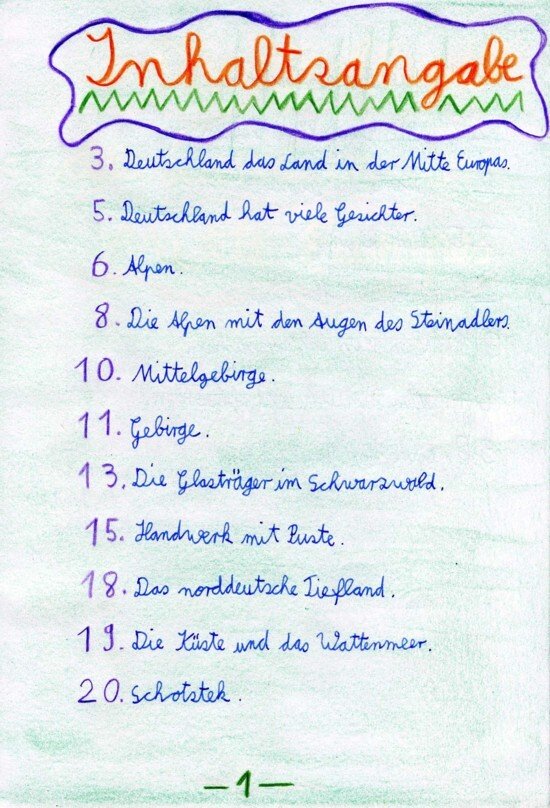 Inhaltsangabe
3. Deutschland das Land in der Mitte Europas.
5. Deutschland hat viele Gesichter.
6. Alpen.
8. Die Alpen mit den Augen des Steinadlers.
10. Mittelgebirge.
11. Gebirge.
13. Die Glasträger im Schwarzwald.
15. Handwerk mit Puste.
18. Das norddeutsche Tiefland.
19. Die Küste und das Wattenmeer.
20. Schotstek.
–1–